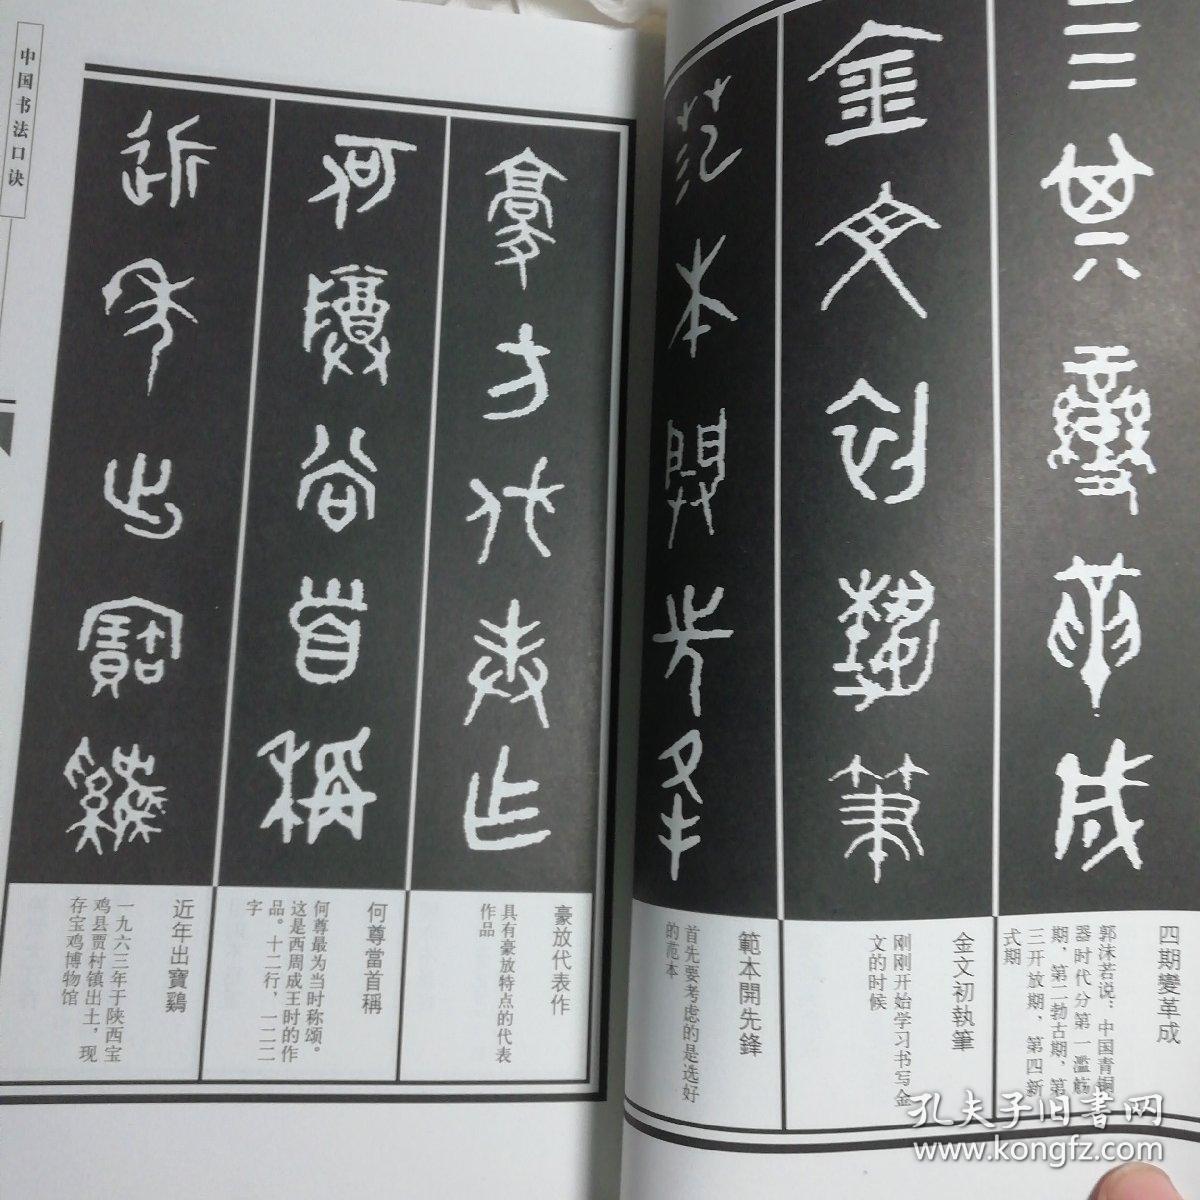 四期變革成
郭沫若说：中国青铜
器时代分第一滥觞
期，第二勃古期，第
三开放期，第四新
式期
金文初執筆
刚刚开始学习书写金
文的时候
範本開先鋒
首先要考虑的是选好
的范本
中国书法口诀
豪放代表作
具有豪放特点的代表
作品
何尊當首稱
何尊最为当时称颂。
这是西周成王时的作
品。十二行，一二二
字
近年出寶鷄
一九六三年于陕西宝
鸡县贾村镇出土，现
存宝鸡博物馆
孔夫子旧书网
www.kongfz.com